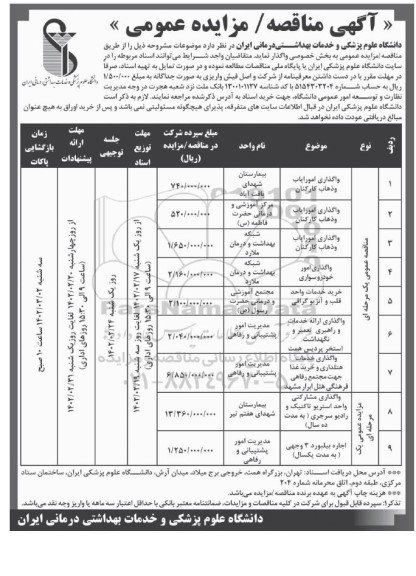 « آگهی مناقصه/ مزایده عمومی »
دانشگاه علوم پزشکی و خدمات بهداشتی درمانی ایران
دانشگاه علوم پزشکی و خدمات بهداشتی‌درمانی ایران در نظر دارد موضوعات مشروحه ذیل را از طریق
مناقصه/مزایده عمومی به بخش خصوصی واگذار نماید. متقاضیان واجد شرایط می‌توانند اسناد مربوطه را در
سایت دانشگاه علوم پزشکی ایران یا پایگاه ملی مناقصات مطالعه نموده و در صورت تمایل به تهیه اسناد، صرفاً
در مهلت مقرر با در دست داشتن معرفینامه از شرکت و اصل فیش واریزی به صورت جداگانه به مبلغ ۱/۵۰۰/۰۰۰
ریال به حساب شماره ۵۱۵۴۳۰۳۲۰۴ با کد شناسه ۱۳۰۰۱۰۱۱۳۷ بانک ملت نزد شعبه هجرت در وجه مدیریت
نظارت و توسعه امور عمومی دانشگاه، جهت خرید اسناد به آدرس ذکرشده مراجعه نمایند. لازم به ذکر است
دانشگاه علوم پزشکی ایران در قبال اطلاعات سایت های متفرقه، پذیرای هیچگونه مسئولیتی نمی باشد و پس از خرید اوراق به هیچ عنوان
مبالغ دریافتی عودت داده نخواهد شد.
ردیف نوع موضوع نام واحد مبلغ سپرده شرکت در مناقصه/ مزایده (ریال) مهلت توزیع اسناد جلسه توجیهی مهلت ارائه پیشنهادات زمان بازگشایی پاکات
مناقصه عمومی یک مرحله ای
۱ واگذاری امور ایاب وذهاب کارکنان بیمارستان شهدای یافت آباد ۷۴۰/۰۰۰/۰۰۰
۲ واگذاری امور ایاب وذهاب کارکنان مرکز آموزشی و درمانی حضرت فاطمه (س) ۵۲۰/۰۰۰/۰۰۰
۳ واگذاری امور ایاب وذهاب کارکنان شبکه بهداشت و درمان ملارد ۱/۶۵۰/۰۰۰/۰۰۰
۴ واگذاری امور خودرو سواری شبکه بهداشت و درمان ملارد ۲/۱۶۰/۰۰۰/۰۰۰
۵ خرید خدمات واحد قلب و آنژیوگرافی مجتمع آموزشی و درمانی حضرت رسول (ص) ۲/۱۰۰/۰۰۰/۰۰۰
۶ واگذاری ارائه خدمات و راهبری تعمیر و نگهداشت استخر پردیس همت مدیریت امور پشتیبانی و رفاهی ۲/۰۴۰/۰۰۰/۰۰۰
۷ واگذاری خدمات هتلداری و خرید غذا جهت مجتمع رفاهی فرهنگی هتل ابرار مشهد مدیریت امور پشتیبانی و رفاهی ۶/۸۵۰/۰۰۰/۰۰۰
مزایده عمومی یک مرحله ای
۸ واگذاری مشارکتی واحد استریو تاکتیک و رادیو سرجری ( به مدت ده سال) بیمارستان شهدای هفتم تیر ۱۳/۳۶۰/۰۰۰/۰۰۰
۹ اجاره بیلبورد ۳ وجهی ( به مدت یکسال) مدیریت امور پشتیبانی و رفاهی ۱/۲۵۰/۰۰۰/۰۰۰
از روز یک شنبه ۱۴۰۲/۰۲/۱۷ لغایت روز سه شنبه ۱۴۰۲/۰۲/۱۹ (ساعت ۹ الی ۱۵:۳۰ روزهای اداری)
روز یک شنبه ۱۴۰۲/۰۲/۲۴
از روز چهارشنبه ۱۴۰۲/۰۲/۲۰ لغایت روز یک شنبه ۱۴۰۲/۰۲/۳۱ (ساعت ۹ الی ۱۵:۳۰ روزهای اداری)
سه شنبه ۱۴۰۲/۰۳/۰۲ ساعت ۱۰ صبح
ParsNamadData
۰۲۱-۸۸۳۴۹۶۷۰-۵
*** آدرس محل دریافت اسناد: تهران، بزرگراه همت، خروجی برج میلاد، میدان آرش، دانشگاه علوم پزشکی ایران، ساختمان ستاد
مرکزی، طبقه دوم، اتاق محرمانه شماره ۲۰۴
*** هزینه چاپ آگهی به عهده برنده مناقصه/مزایده می‌باشد.
تذکر: سپرده قابل قبول برای شرکت در کلیه مناقصات و مزایدات، ضمانتنامه معتبر بانکی با حداقل اعتبار سه ماهه یا واریز وجه نقد می‌باشد.
دانشگاه علوم پزشکی و خدمات بهداشتی درمانی ایران